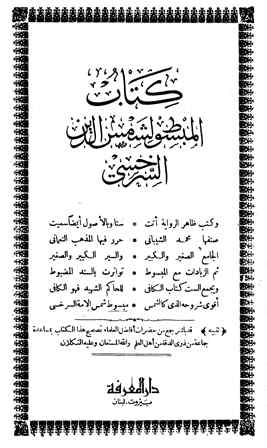 كتاب
المبسوط لشمس الدين
السرخسي
وكتب ظاهر الرواية أتت * ستا وبالأصول أيضا سميت
صنفها محمد الشيباني * حرر فيها المذهب النعماني
الجامع الصغير والكبير * والسير الكبير والصغير
ثم الزيادات مع المبسوط * تواترت بالسند المضبوط
ويجمع الست كتاب الكافي * للحاكم الشهيد فهو الكافي
أقوى شروحه الذي كالشمس * مبسوط شمس الأمة السرخسي
﴿تنبيه﴾ قد باشر جمع من حضرات أفاضل العلماء تصحيح هذا الكتاب بمساعدة
جماعة من ذوي الدقة من أهل العلم والله المستعان وعليه التكلان
دار المعرفة
بيروت. لبنان